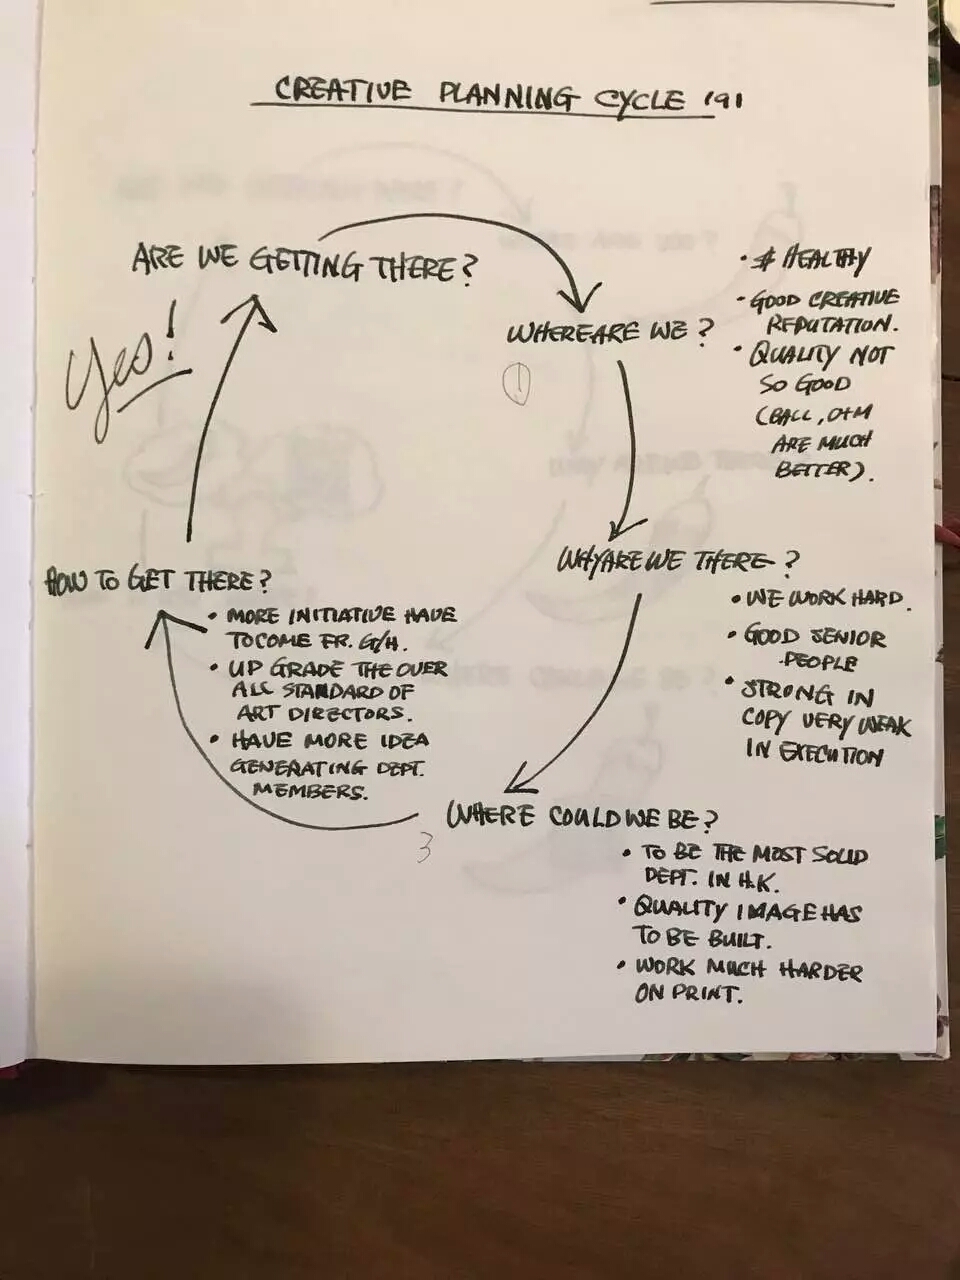 CREATIVE PLANNING CYCLE '91
ARE WE GETTING THERE?
Yes!
WHERE ARE WE?
①
• $ HEALTHY
• GOOD CREATIVE
REPUTATION.
• QUALITY NOT
SO GOOD
(BALL, O+M
ARE MUCH
BETTER).
WHY ARE WE THERE?
• WE WORK HARD.
• GOOD SENIOR
PEOPLE
• STRONG IN
COPY VERY WEAK
IN EXECUTION
WHERE COULD WE BE?
3
• TO BE THE MOST SOLID
DEPT. IN H.K.
• QUALITY IMAGE HAS
TO BE BUILT.
• WORK MUCH HARDER
ON PRINT.
HOW TO GET THERE?
• MORE INITIATIVE HAVE
TO COME FR. G/H.
• UP GRADE THE OVER
ALL STANDARD OF
ART DIRECTORS.
• HAVE MORE IDEA
GENERATING DEPT.
MEMBERS.